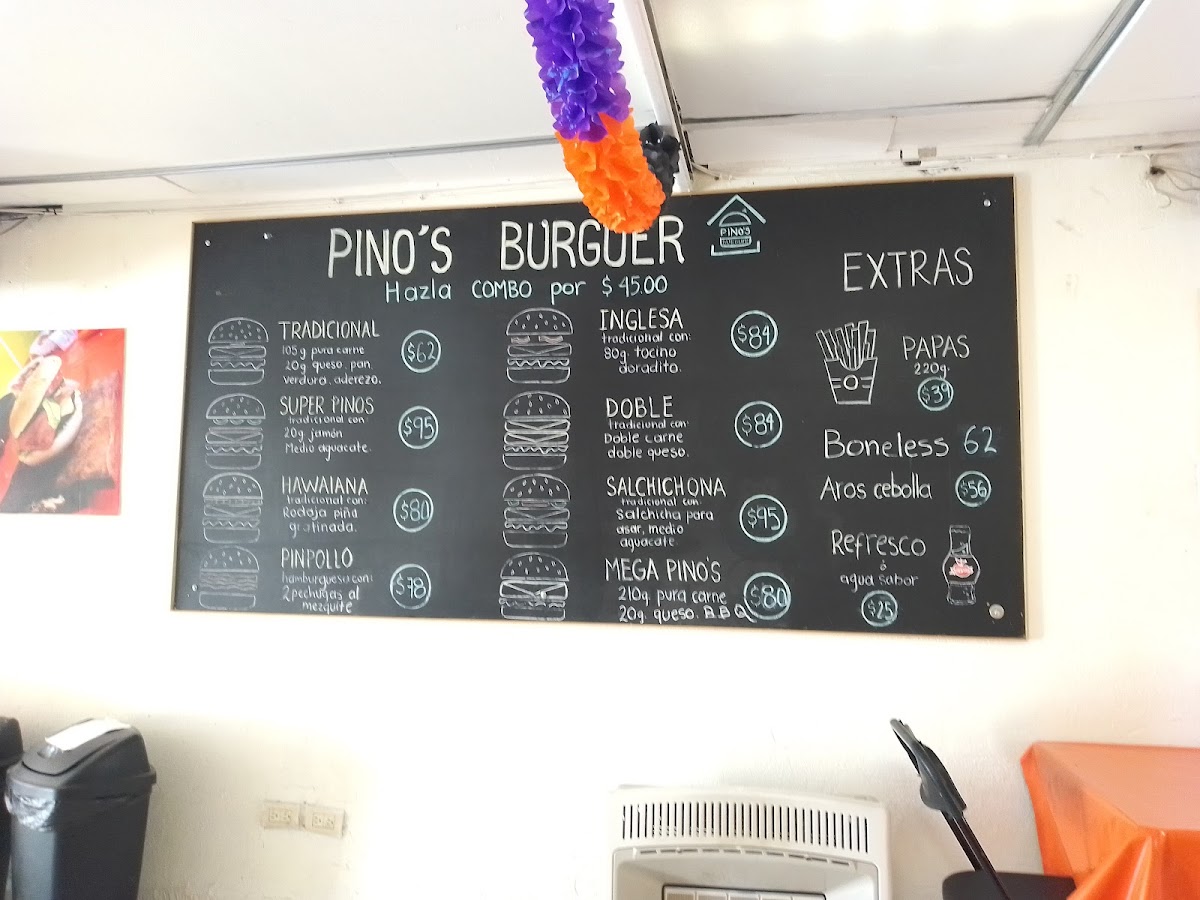 PINO'S BURGUER
PINO'S
Hazla COMBO por $45.00
TRADICIONAL
105g pura carne
20g queso. pan.
verdura. aderezo.
$62
SUPER PINOS
tradicional con:
20g jamón
Medio aguacate.
$95
HAWAIANA
tradicional con:
Rodaja piña
gratinada.
$80
PINPOLLO
hamburguesa con:
2 pechugas al
mezquite
$78
INGLESA
tradicional con:
80g. tocino
doradito.
$84
DOBLE
tradicional con:
Doble carne
doble queso.
$84
SALCHICHONA
tradicional con
Salchicha para
asar, medio
aguacate
$95
MEGA PINO'S
210g. pura carne
20g. queso. B.B.Q
$80
EXTRAS
PAPAS
220g.
$39
Boneless 62
Aros cebolla $56
Refresco
ó
agua sabor
$25